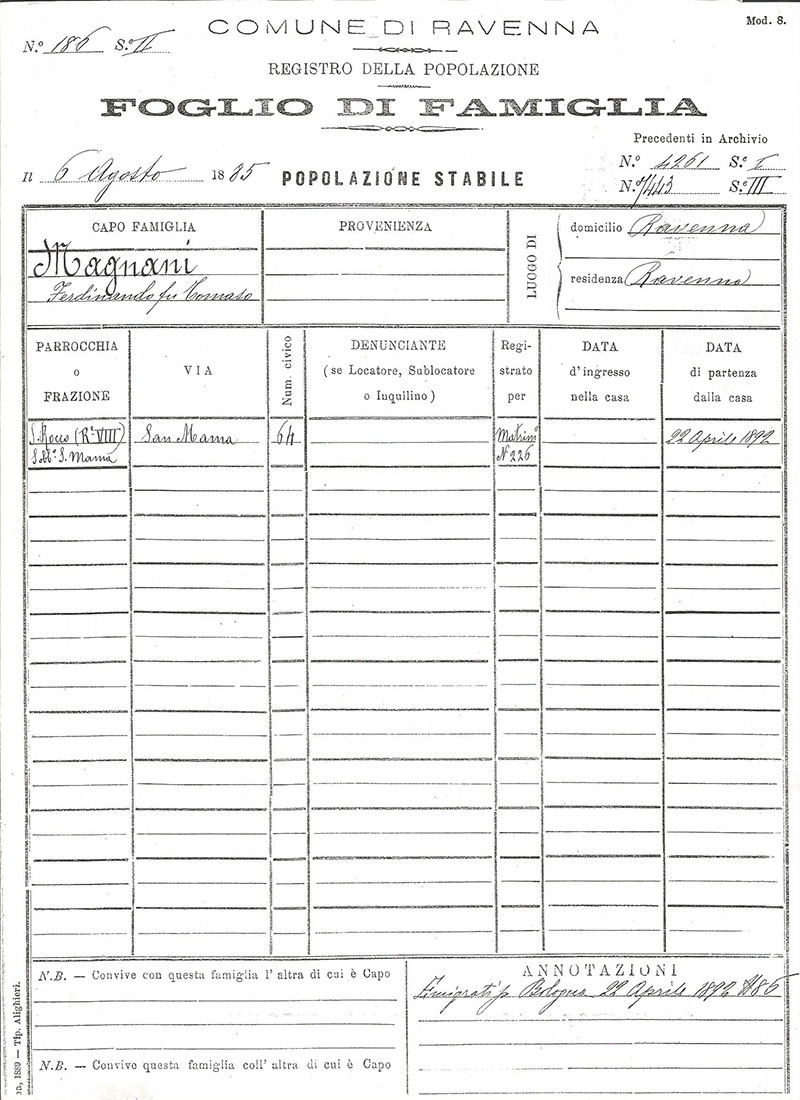 COMUNE DI RAVENNA
Mod. 8.
N.º 186 S.º II
REGISTRO DELLA POPOLAZIONE
FOGLIO DI FAMIGLIA
Precedenti in Archivio
N.º 4261 S.º I
N.º 7443 S.º III
Il 6 Agosto 1885 POPOLAZIONE STABILE
CAPO FAMIGLIA
Magnani
Ferdinando fu Tomaso
PROVENIENZA
LUOGO DI
domicilio Ravenna
residenza Ravenna
PARROCCHIA
o
FRAZIONE
VIA
Num. civico
DENUNCIANTE
(se Locatore, Sublocatore
o Inquilino)
Regi-
strato
per
DATA
d'ingresso
nella casa
DATA
di partenza
dalla casa
S. Rocco (R.e VIII) San Mama 64 Matrim 22 Aprile 1892
S. Mama N 226
N.B. — Convive con questa famiglia l'altra di cui è Capo
N.B. — Convive questa famiglia coll'altra di cui è Capo
ANNOTAZIONI
Bologna 22 Aprile 1892 N 86
1889 — Tip. Alighieri.